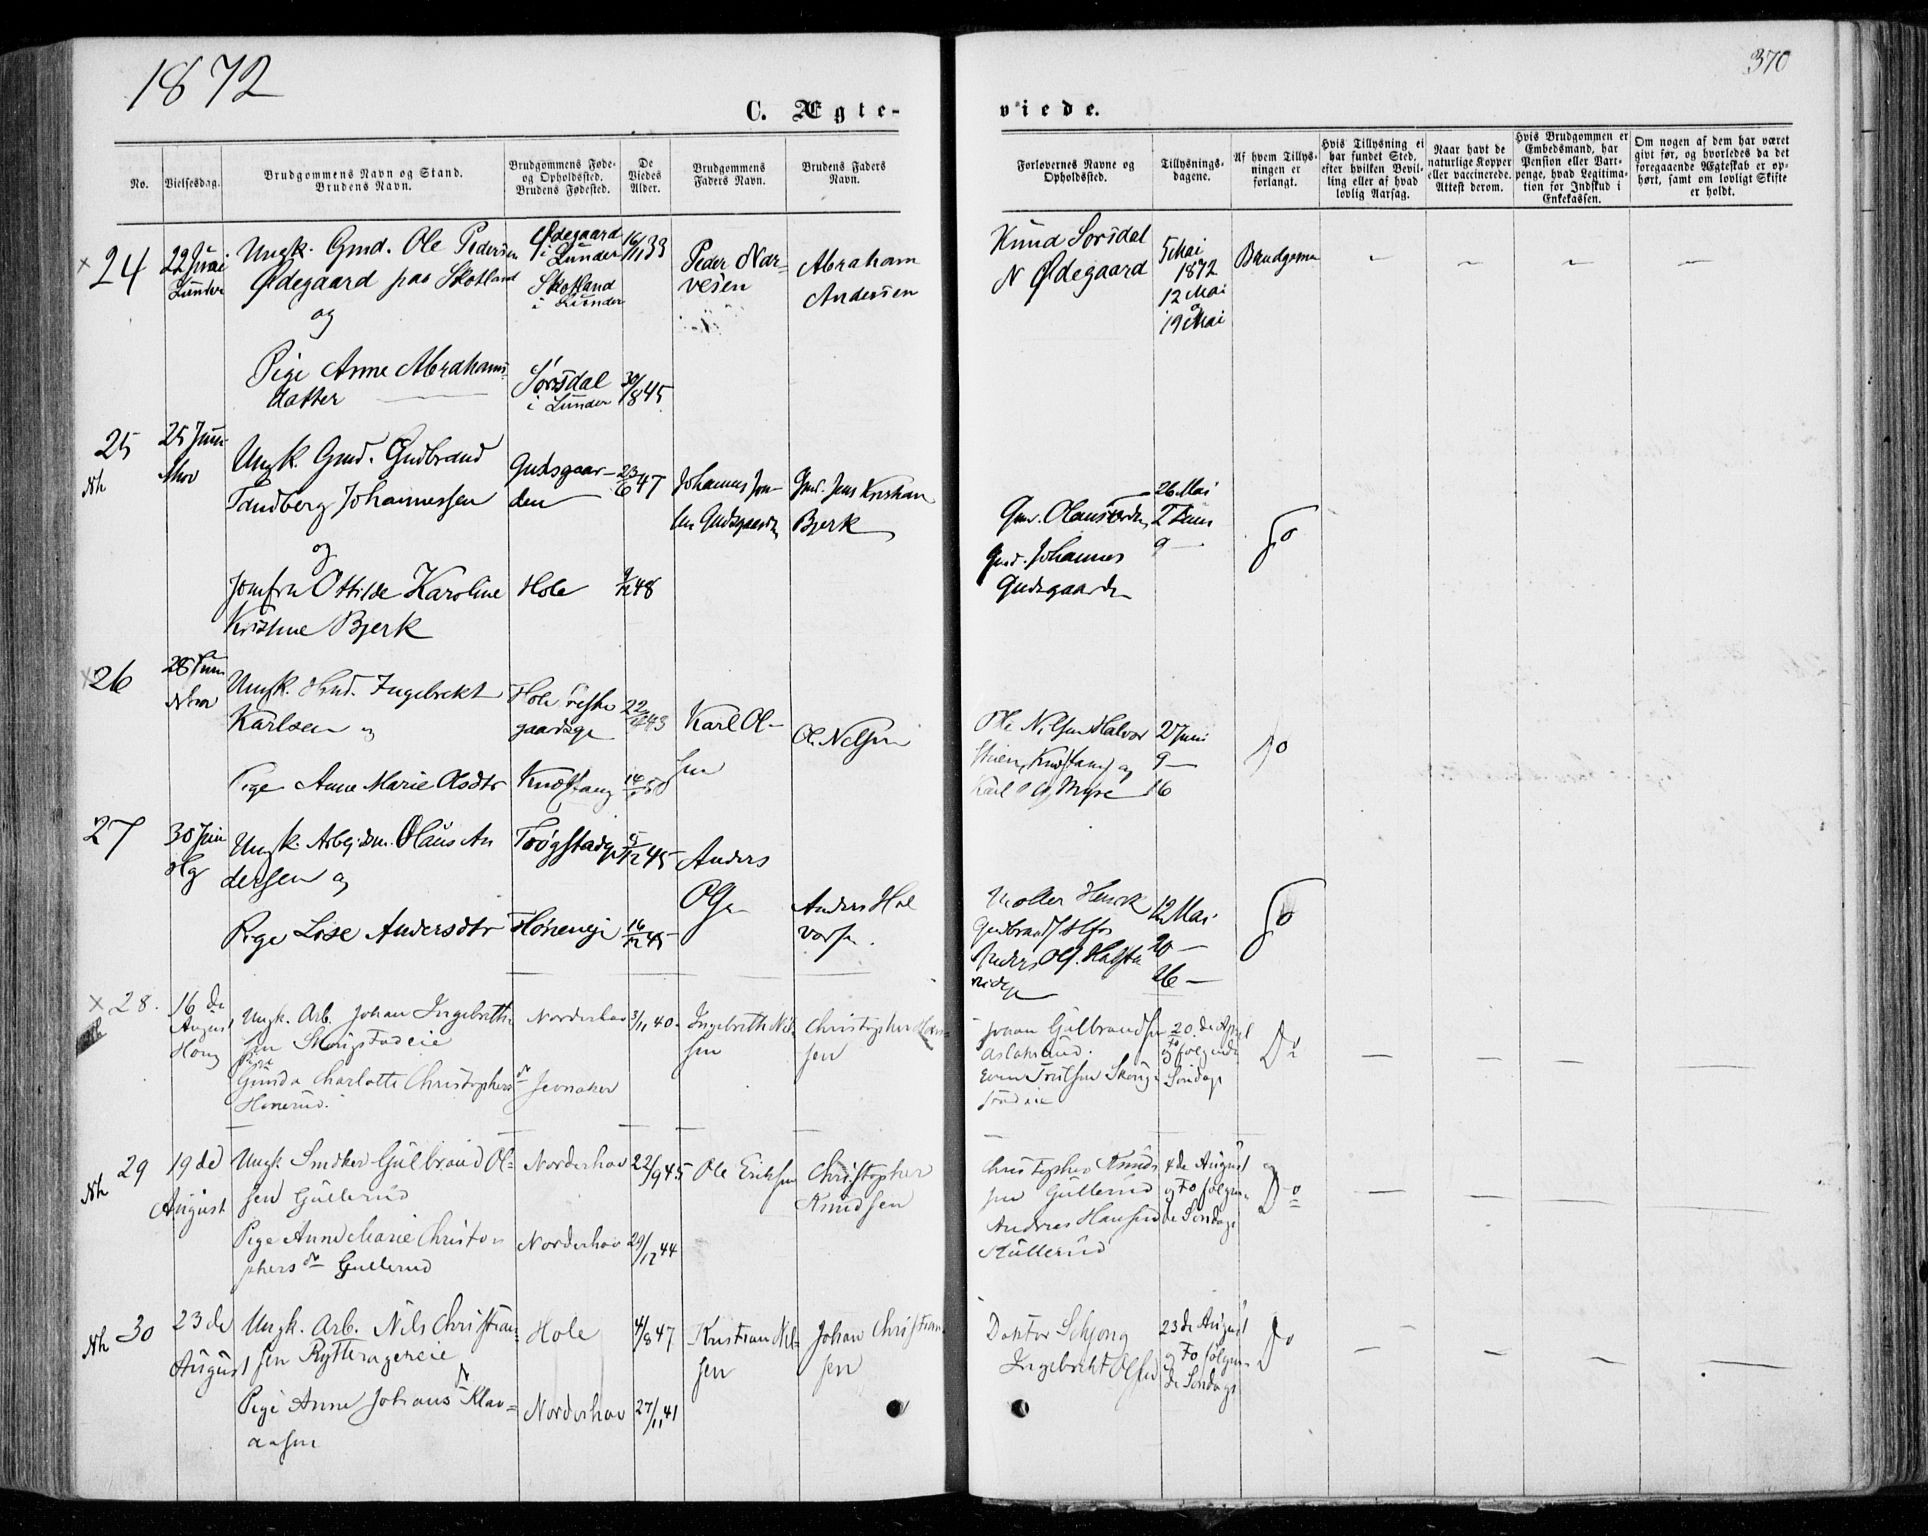 1872
370
C. Ægte-
viede.
No.
Vielsesdag.
Brudgommens Navn og Stand.
Brudens Navn.
Brudgommens Føde-
og Opholdssted.
Brudens Fødested.
De
Viedes
Alder.
Brudgommens
Faders Navn.
Brudens Faders
Navn.
Forlovernes Navne og
Opholdssted.
Tillysnings-
dagene.
Af hvem Tillys-
ningen er
forlangt.
Hvis Tillysning ei
har fundet Sted,
efter hvilken Bevil-
ling eller af hvad
lovlig Aarsag.
Naar havt de
naturlige Kopper
eller vaccinerede.
Attest derom.
Hvis Brudgommen er
Embedsmand, har
Pension eller Vart-
penge, hvad Legitima-
tion for Indskud i
Enkekassen.
Om nogen af dem har været
givt før, og hvorledes da det
foregaaende Ægteskab er op-
hørt, samt om lovligt Skifte
er holdt.
24
22 Juni
Lunder
Ungk. Gmd. Ole Pedersen
Ødegaard paa Skotland
og
Pige Anne Abrahams-
datter
Ødegaard
i Lunder
Skotland
i Lunder
Sørsdal
i Lunder
16/11 33
30/8 45
Peder Nar-
vesen
Abraham
Andersen
Knud Sorsdal
N Ødegaard
5 Mai
1872
12 Mai
og
19 Mai
Brudgommen
25
Nh
25 Juni
Nhov
Ungk. Gmd. Gudbrand
Tandberg Johannessen
og
Jomfru Ottilde Karoline
Kristine Bjerk
Gudsgaar-
den
Hole
23/6 47
9/12 48
Johannes Jon-
sen Gudsgaarden
Gmd. Jens Kristian
Bjerk
Gmd. Johannes
Gudsgaarden
26 Mai
2 Juni
9 —
Do
26
28 Juni
Nhov
Ungk. Hmd. Ingebrekt
Karlsen og
Pige Anne Marie Olsdtr
Knæstang
Karl Ol-
sen
Ole Nelsen
Ole Nilsen Halvor
Knæstang og
Karl Myre
2 Juni
9 —
16
Do
27
30 Juni
Hg
Ungk. Arbejdsm. Olaus An
dersen og
Pige Lise Andersdtr
Trøgstadeje
Høneneje
5/12 45
16/12 45
Anders
Olsen
Anders Hal
vorsen.
Møller Henrik
Gudbrandsen Hfos
Anders Ols. Halsten
rudeje
12 Mai
20 —
26 —
Do
28.
16 de
August
Hong
Ungk. Arb. Johan Ingebreths-
sen Skougstadeie
Pige
Gunda Charlotte Christophersdr
Honerud.
Norderhov
Jevnaker
3/11 40.
Ingebreth Nil-
sen
Christopher Han-
sen
Johan Gulbrandsen
Aslaksrud.
Even Troelsen Skoug-
stadeie
20 de April
og To følgende
Søndage
Do
29
Nh
19 de
August
Ungk. Smdker Gulbrand Ol-
sen Gullerud
Pige Anne Marie Christo-
phersdr Gullerud
Norderhov
Norderhov
22/9 45
29/12 44
Ole Eriksen
Christopher
Knudsen
Christopher Knud-
sen Gullerud
Andreas Hansen
Kullerud
4 de August
og To følgen-
de Søndage
Do
30
Nh
23 de
August
Ungk. Arb. Nils Christian-
sen Rytteragereie
Pige Anne Johansdr Klev-
aasen
Hole
Norderhov
4/8 47
27/11 41
Kristian Nil-
sen
Johan Christian-
sen
Doktor Schjong
Ingebrekt Olsen
23 de August
og To følgen-
de Søndage
Do